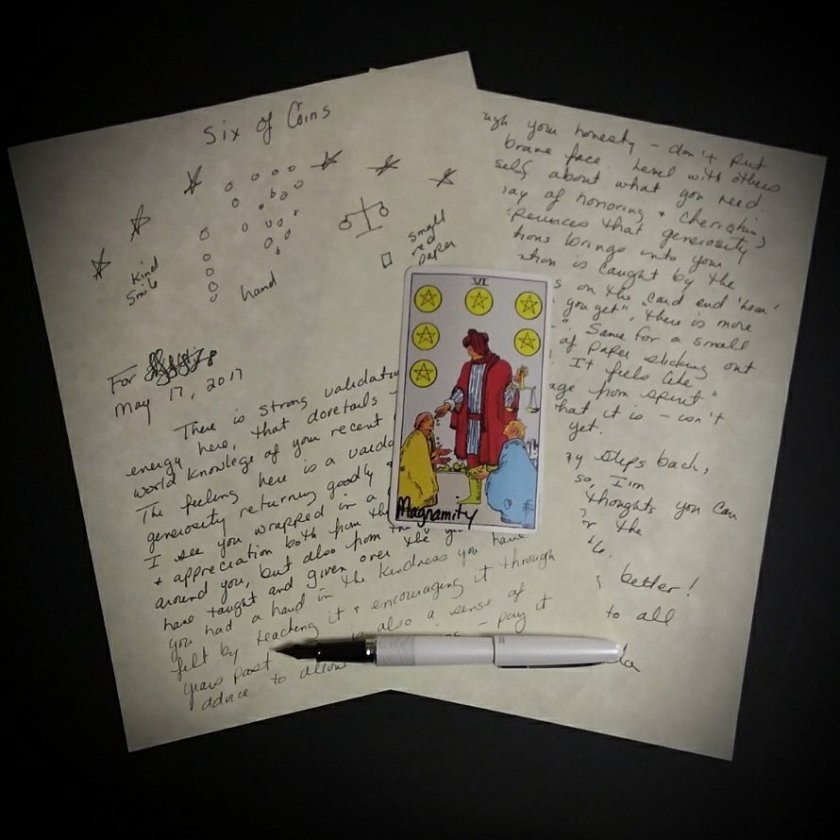 Six of Coins
Kind
Smile
hand
small
red
paper
For
May 17, 2017
There is strong validatio
energy here, that dovetails
world knowlege of your recent
The feeling here is a valida
generosity returning goodly
I see you wrapped in a
+ appreciation both from the
around you, but also from
have taught and given over the
you had a hand in the kindness you have
felt by teaching it + encouraging it through
years past is also a sense of
advice to allow - pay it
VI
Magnamity
ugh your honesty - don't put
brave face. Level with others
self about what you need
ay of honoring + cherishing
periences that generosity
tions brings into your
ntion is caught by the
s on the card and 'hear'
you get", there is more
". Same for a small
of paper sticking out
It feels like
age from spirit
hat it is - won't
yet.
steps back,
so, I'm
thoughts you can
r the
better!
to all
da